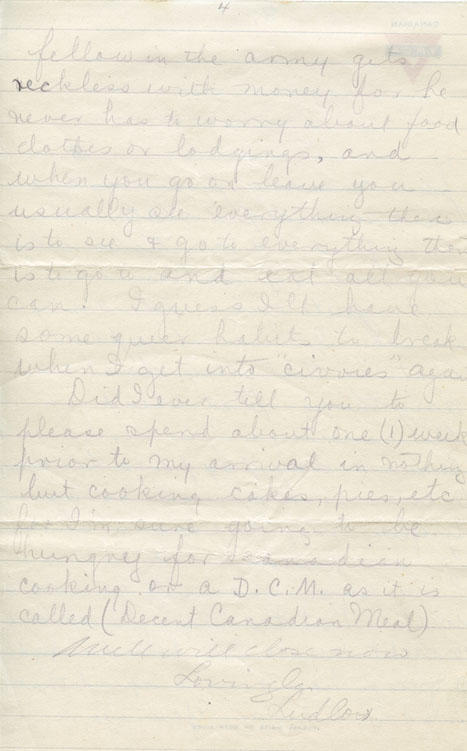 4
CANADIAN
fellow in the army gets
reckless with money for he
never has to worry about food
clothes or lodgings, and
when you go on leave you
usually see everything there
is to see & go to everything there
is to go to and eat all you
can. I guess I'll have
some queer habits to break
when I get into "civvies" again
Did I ever tell you to
please spend about one (1) week
prior to my arrival in nothing
but cooking cakes, pies, etc
for I'm sure going to be
hungry for Canadian
cooking or a D.C.M. as it is
called (Decent Canadian Meal)
Well will close now
Lovingly
Ludlow